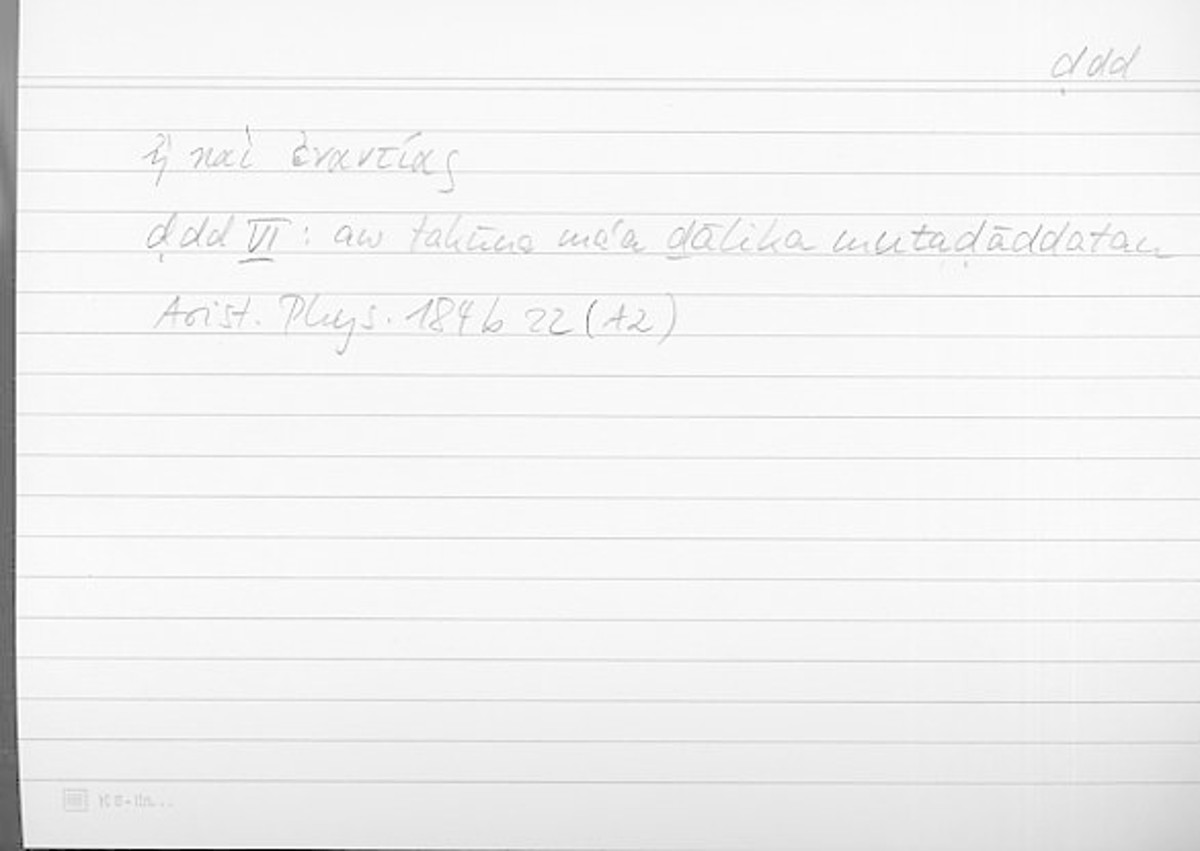 ḍdd
ἢ καὶ ἐναντίας
ḍdd VI : aw takūna maʿa ḏālika mutaḍāddatan
Arist. Phys. 184 b 22 (A2)